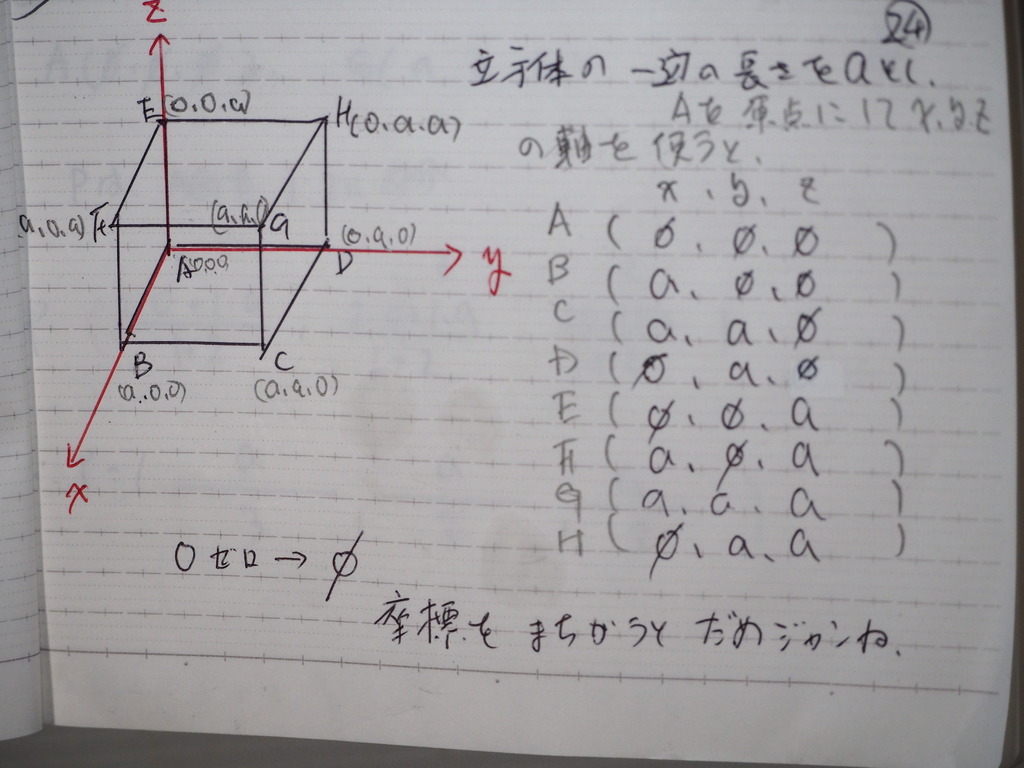 24
z
立方体の一辺の長さをaとし、
Aを原点にしてx,y,z
の軸を使うと、
x、y、z
E(0.0.a)
H(0.a.a)
(a.0.a)F
(a.a.a)G
A(0,0,0)
(0.a.0)
D
y
B
C
(a.0.0)
(a.a.0)
x
A(0、0、0)
B(a、0、0)
C(a、a、0)
D(0、a、0)
E(0、0、a)
F(a、0、a)
G(a、a、a)
H(0、a、a)
0ゼロ→∅
座標をまちがうとだめジャンね、